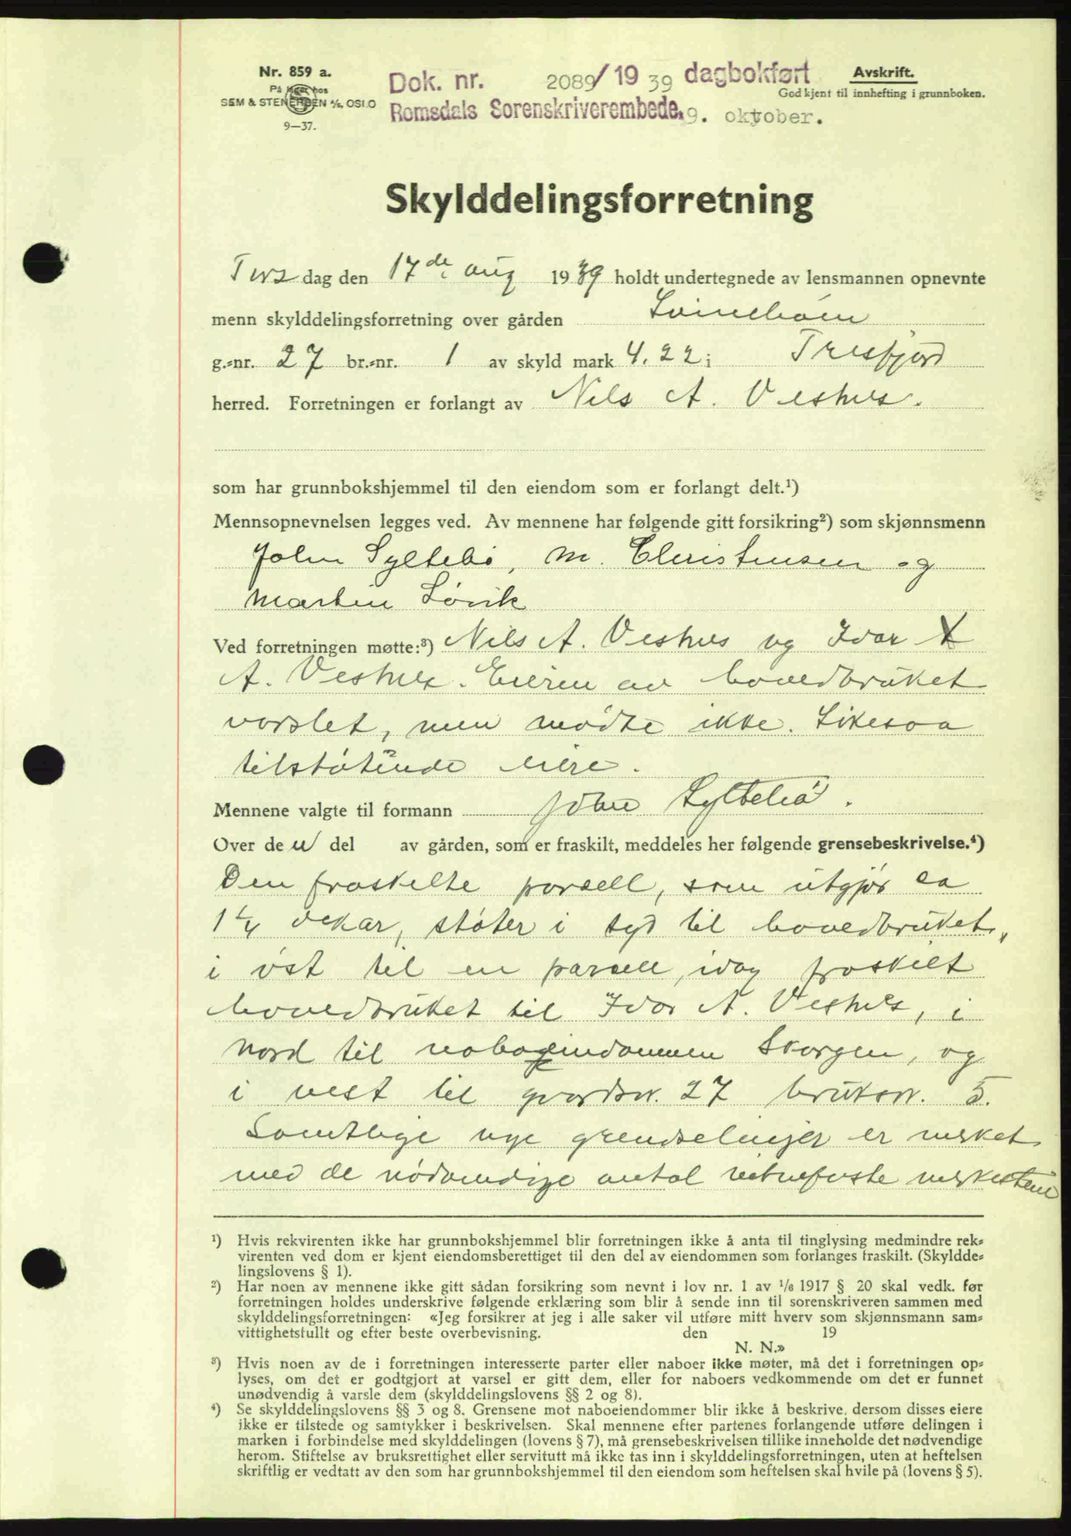 Nr. 859 a.
På lager hos
SEM & STENERSEN A/S, OSLO
9—37.
Dok. nr. 2089/1939 dagbokført
Romsdals Sorenskriverembede, 9. oktober.
Avskrift.
Godkjent til innhefting i grunnboken.
Skylddelingsforretning
Torsdag den 17de aug 1939 holdt undertegnede av lensmannen opnevnte
menn skylddelingsforretning over gården
g.-nr. 27 br.-nr. 1 av skyld mark 4.22 i Tresfjord
herred. Forretningen er forlangt av Nils A. Veshus.
som har grunnbokshjemmel til den eiendom som er forlangt delt.¹)
Mennsopnevnelsen legges ved. Av mennene har følgende gitt forsikring²) som skjønnsmenn
John Syltebö, M. Christensen og
Martin Løvik
Ved forretningen møtte:³) Nils A. Veshus og Ivar
A. Veshus. Eieren av hovedbruket
varslet, men mødte ikke. Likesaa
tilstøtende eiere.
Mennene valgte til formann John Syltebö.
Over den del av gården, som er fraskilt, meddeles her følgende grensebeskrivelse.⁴)
Den fraskilte parsell, som utgjør ca
1 1/4 dekar, støter i syd til hovedbruket,
i øst til en parsell, idag fraskilt
hovedbruket til Ivar A. Veshus, i
nord til naboeiendommen Skorgen, og
i vest til gårdsnr. 27 bruksnr. 5.
Samtlige nye grendselinjer er merket
med de nødvendige antal vitnefaste merkestene
¹) Hvis rekvirenten ikke har grunnbokshjemmel blir forretningen ikke å anta til tinglysing medmindre rek-
virenten ved dom er kjent eiendomsberettiget til den del av eiendommen som forlanges fraskilt. (Skyldde-
lingslovens § 1).
²) Har noen av mennene ikke gitt sådan forsikring som nevnt i lov nr. 1 av 1/6 1917 § 20 skal vedk. før
forretningen holdes underskrive følgende erklæring som blir å sende inn til sorenskriveren sammen med
skylddelingsforretningen: «Jeg forsikrer at jeg i alle saker vil utføre mitt hverv som skjønnsmann sam-
vittighetsfullt og efter beste overbevisning. den 19
N. N.»
³) Hvis noen av de i forretningen interesserte parter eller naboer ikke møter, må det i forretningen op-
lyses, om det er godtgjort at varsel er gitt dem, eller for naboers vedkommende om det er funnet
unødvendig å varsle dem (skylddelingslovens §§ 2 og 8).
⁴) Se skylddelingslovens §§ 3 og 8. Grensene mot naboeiendommer blir ikke å beskrive, dersom disses eiere
ikke er tilstede og samtykker i beskrivelsen. Skal mennene efter partenes forlangende utføre delingen i
marken i forbindelse med skylddelingen (lovens § 7), må grensebeskrivelsen tillike inneholde det nødvendige
herom. Stiftelse av bruksrettighet eller servitutt må ikke tas inn i skylddelingsforretningen, uten at heftelsen
skriftlig er vedtatt av den som har grunnbokshjemmel til den eiendom som heftelsen skal hvile på (lovens § 5).